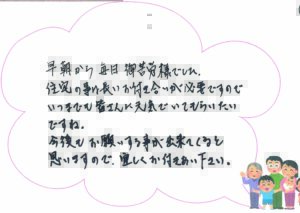 早朝から毎日御苦労様でした。
住宅の事は長いお付き合いが必要ですので
いつまでも皆さんに元気でいてもらいたい
ですね。
今後もお願いする事が出来てくると
思いますので、宜しくお付き合い下さい。